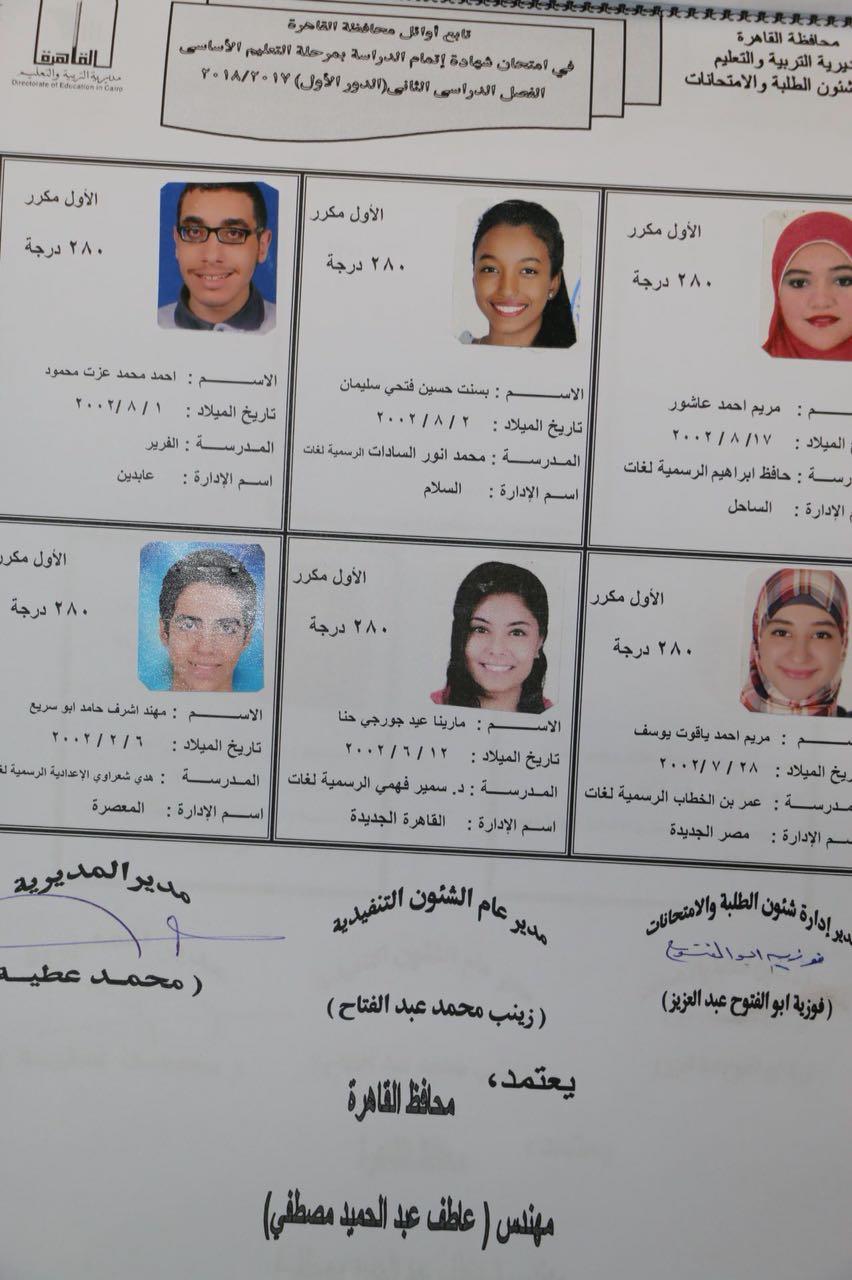 محافظة القاهرة
يرية التربية والتعليم
شئون الطلبة والامتحانات
تابع أوائل محافظة القاهرة
في امتحان شهادة إتمام الدراسة بمرحلة التعليم الأساسى
الفصل الدراسى الثانى(الدور الأول) ٢٠١٨/٢٠١٧
القاهرة
مديرية التربية والتعليم
Directorate of Education in Cairo
الأول مكرر
٢٨٠ درجة
ـم : مريم احمد عاشور
خ الميلاد : ٢٠٠٢ / ٨ / ١٧
رسـة : حافظ ابراهيم الرسمية لغات
م الإدارة : الساحل
الأول مكرر
٢٨٠ درجة
الاسـم : بسنت حسين فتحي سليمان
تاريخ الميلاد : ٢٠٠٢ / ٨ / ٢
المدرسـة : محمد انور السادات الرسمية لغات
اسم الإدارة : السلام
الأول مكرر
٢٨٠ درجة
الاسـم : احمد محمد عزت محمود
تاريخ الميلاد : ٢٠٠٢ / ٨ / ١
المدرسـة : الفرير
اسم الإدارة : عابدين
الأول مكرر
٢٨٠ درجة
ـم : مريم احمد ياقوت يوسف
ريخ الميلاد : ٢٠٠٢ / ٧ / ٢٨
مدرسـة : عمر بن الخطاب الرسمية لغات
سم الإدارة : مصر الجديدة
الأول مكرر
٢٨٠ درجة
الاسـم : مارينا عيد جورجي حنا
تاريخ الميلاد : ٢٠٠٢ / ٦ / ١٢
المدرسـة : د. سمير فهمي الرسمية لغات
اسم الإدارة : القاهرة الجديدة
الأول مكرر
٢٨٠ درجة
الاسـم : مهند اشرف حامد ابو سريع
تاريخ الميلاد : ٢٠٠٢ / ٢ / ٦
المدرسـة : هدي شعراوي الإعدادية الرسمية لغ
اسم الإدارة : المعصرة
دير إدارة شئون الطلبة والامتحانات
فوزيه ابو الفتوح
(فوزية ابو الفتوح عبد العزيز)
مدير عام الشئون التنفيدية
(زينب محمد عبد الفتاح)
مدير المديرية
(محمد عطيـة
يعتمد،
محافظ القاهرة
مهندس (عاطف عبد الحميد مصطفي)